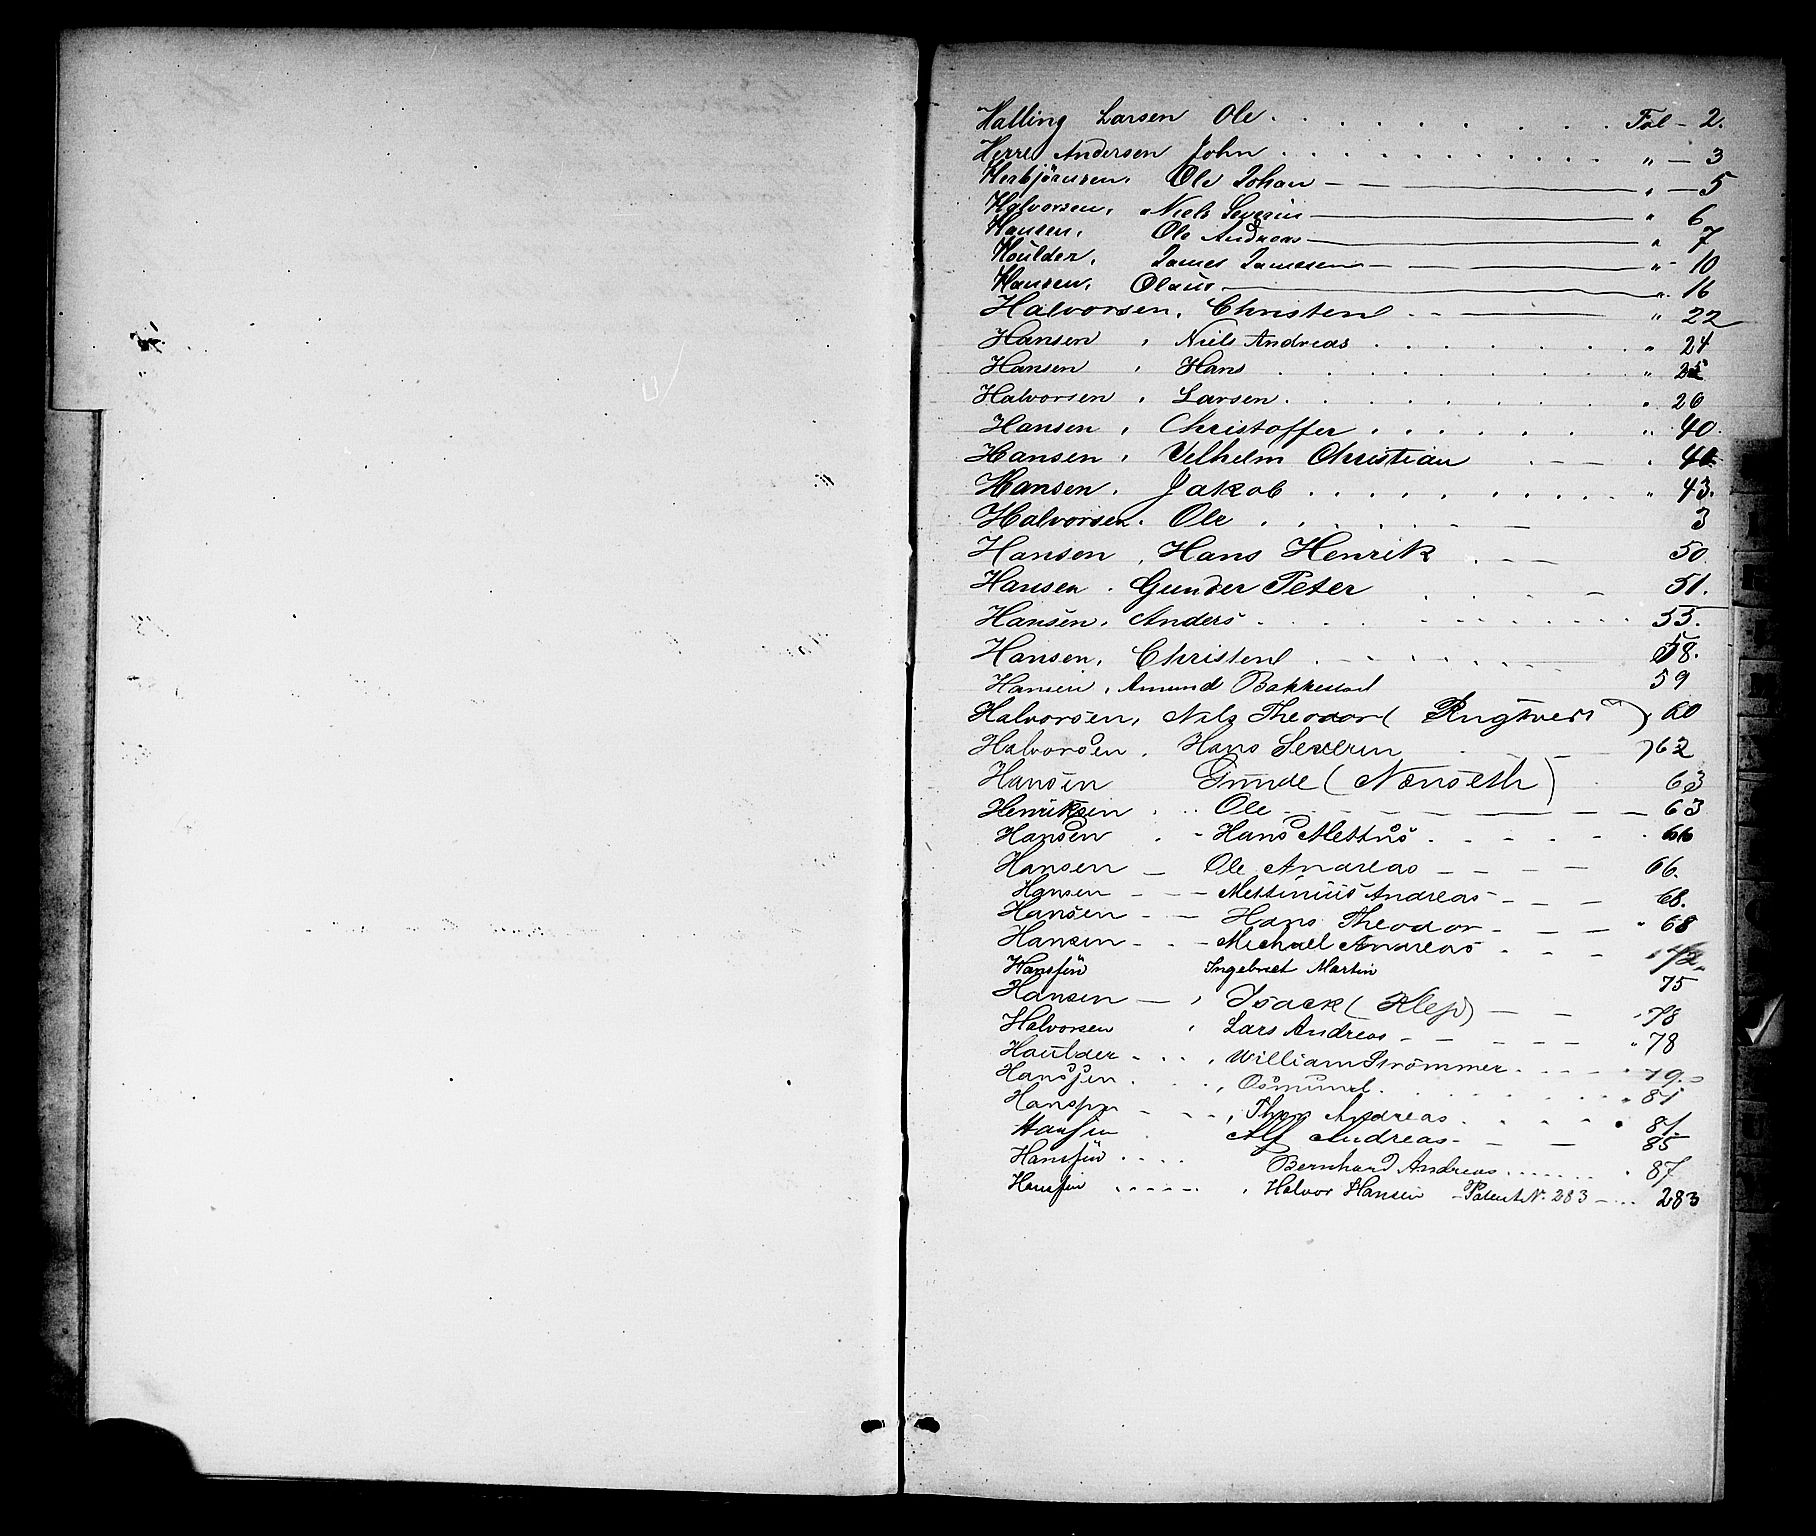 Halling Larsen Ole . . . . . . . . . Fol – 2.
Herre Andersen John . . . . . . . . . . . " — 3
Herbjörnsen, Ole Johan — — " — 5
Halvorsen, Niels Severin — " 6
Hansen, Ole Andreas — " 7
Houlder, James Jamesen — — " 10
Hansen, Olaus — " 16
Halvorsen, Christen . . — " 22
Hansen , Niels Andreas . . . . . . . " 24
Hansen , Hans . . . . . . . . " 25
Halvorsen , Larsen . . . . . . . " 26
Hansen , Christoffer . . . . . . " 40.
Hansen , Velhelm Christian . — — . 41
Hansen . Jakob . . . . . . . . . . . " 43.
Halvorsen. Ole . . . . . . . — 3
Hansen , Hans Henrik . — — — 50
Hansen . Gunder Peter . . . — 51.
Hansen, Anders . . . . . . . . . . 55.
Hansen, Christen . . . . . . — 58.
Hansen, Amund Bakkestad 59
Halvorsen, Nils Theodor ( ) 60
Halvorsen . Hans Severin — 62
Hansen Gunde (Nenseth) 63
Henriksen . . . Ole — — — — — 63
Hansen . - Hans Mettus . . . . . . 66
Hansen — Ole Andreas — — — — 66.
Hansen — — — Mettinius Andreas — — — 68.
Hansen — — Hans Theodor — — — " 68
Hansen — . - — Michael Andreas — . — — 72
Hansen Ingebret Martin 75
Hansen — , Isack (Klep) — — - 78
Halvorsen , Lars Andreas — — — — — " 78
Haulder — . . . , William Strömmer . . . . . 79
Hanssen . . . , Osmund . . . . . . . . 81
Hanssen — — — , Thor Andreas . . . . . 81
Hansen . Alf Andreas — — — 85
Hansen . . . . Bernhard Andreas . . . . . . . 87
Hansen . . . . . , Halvor Hansen — Patent N. 283 — . . . 283